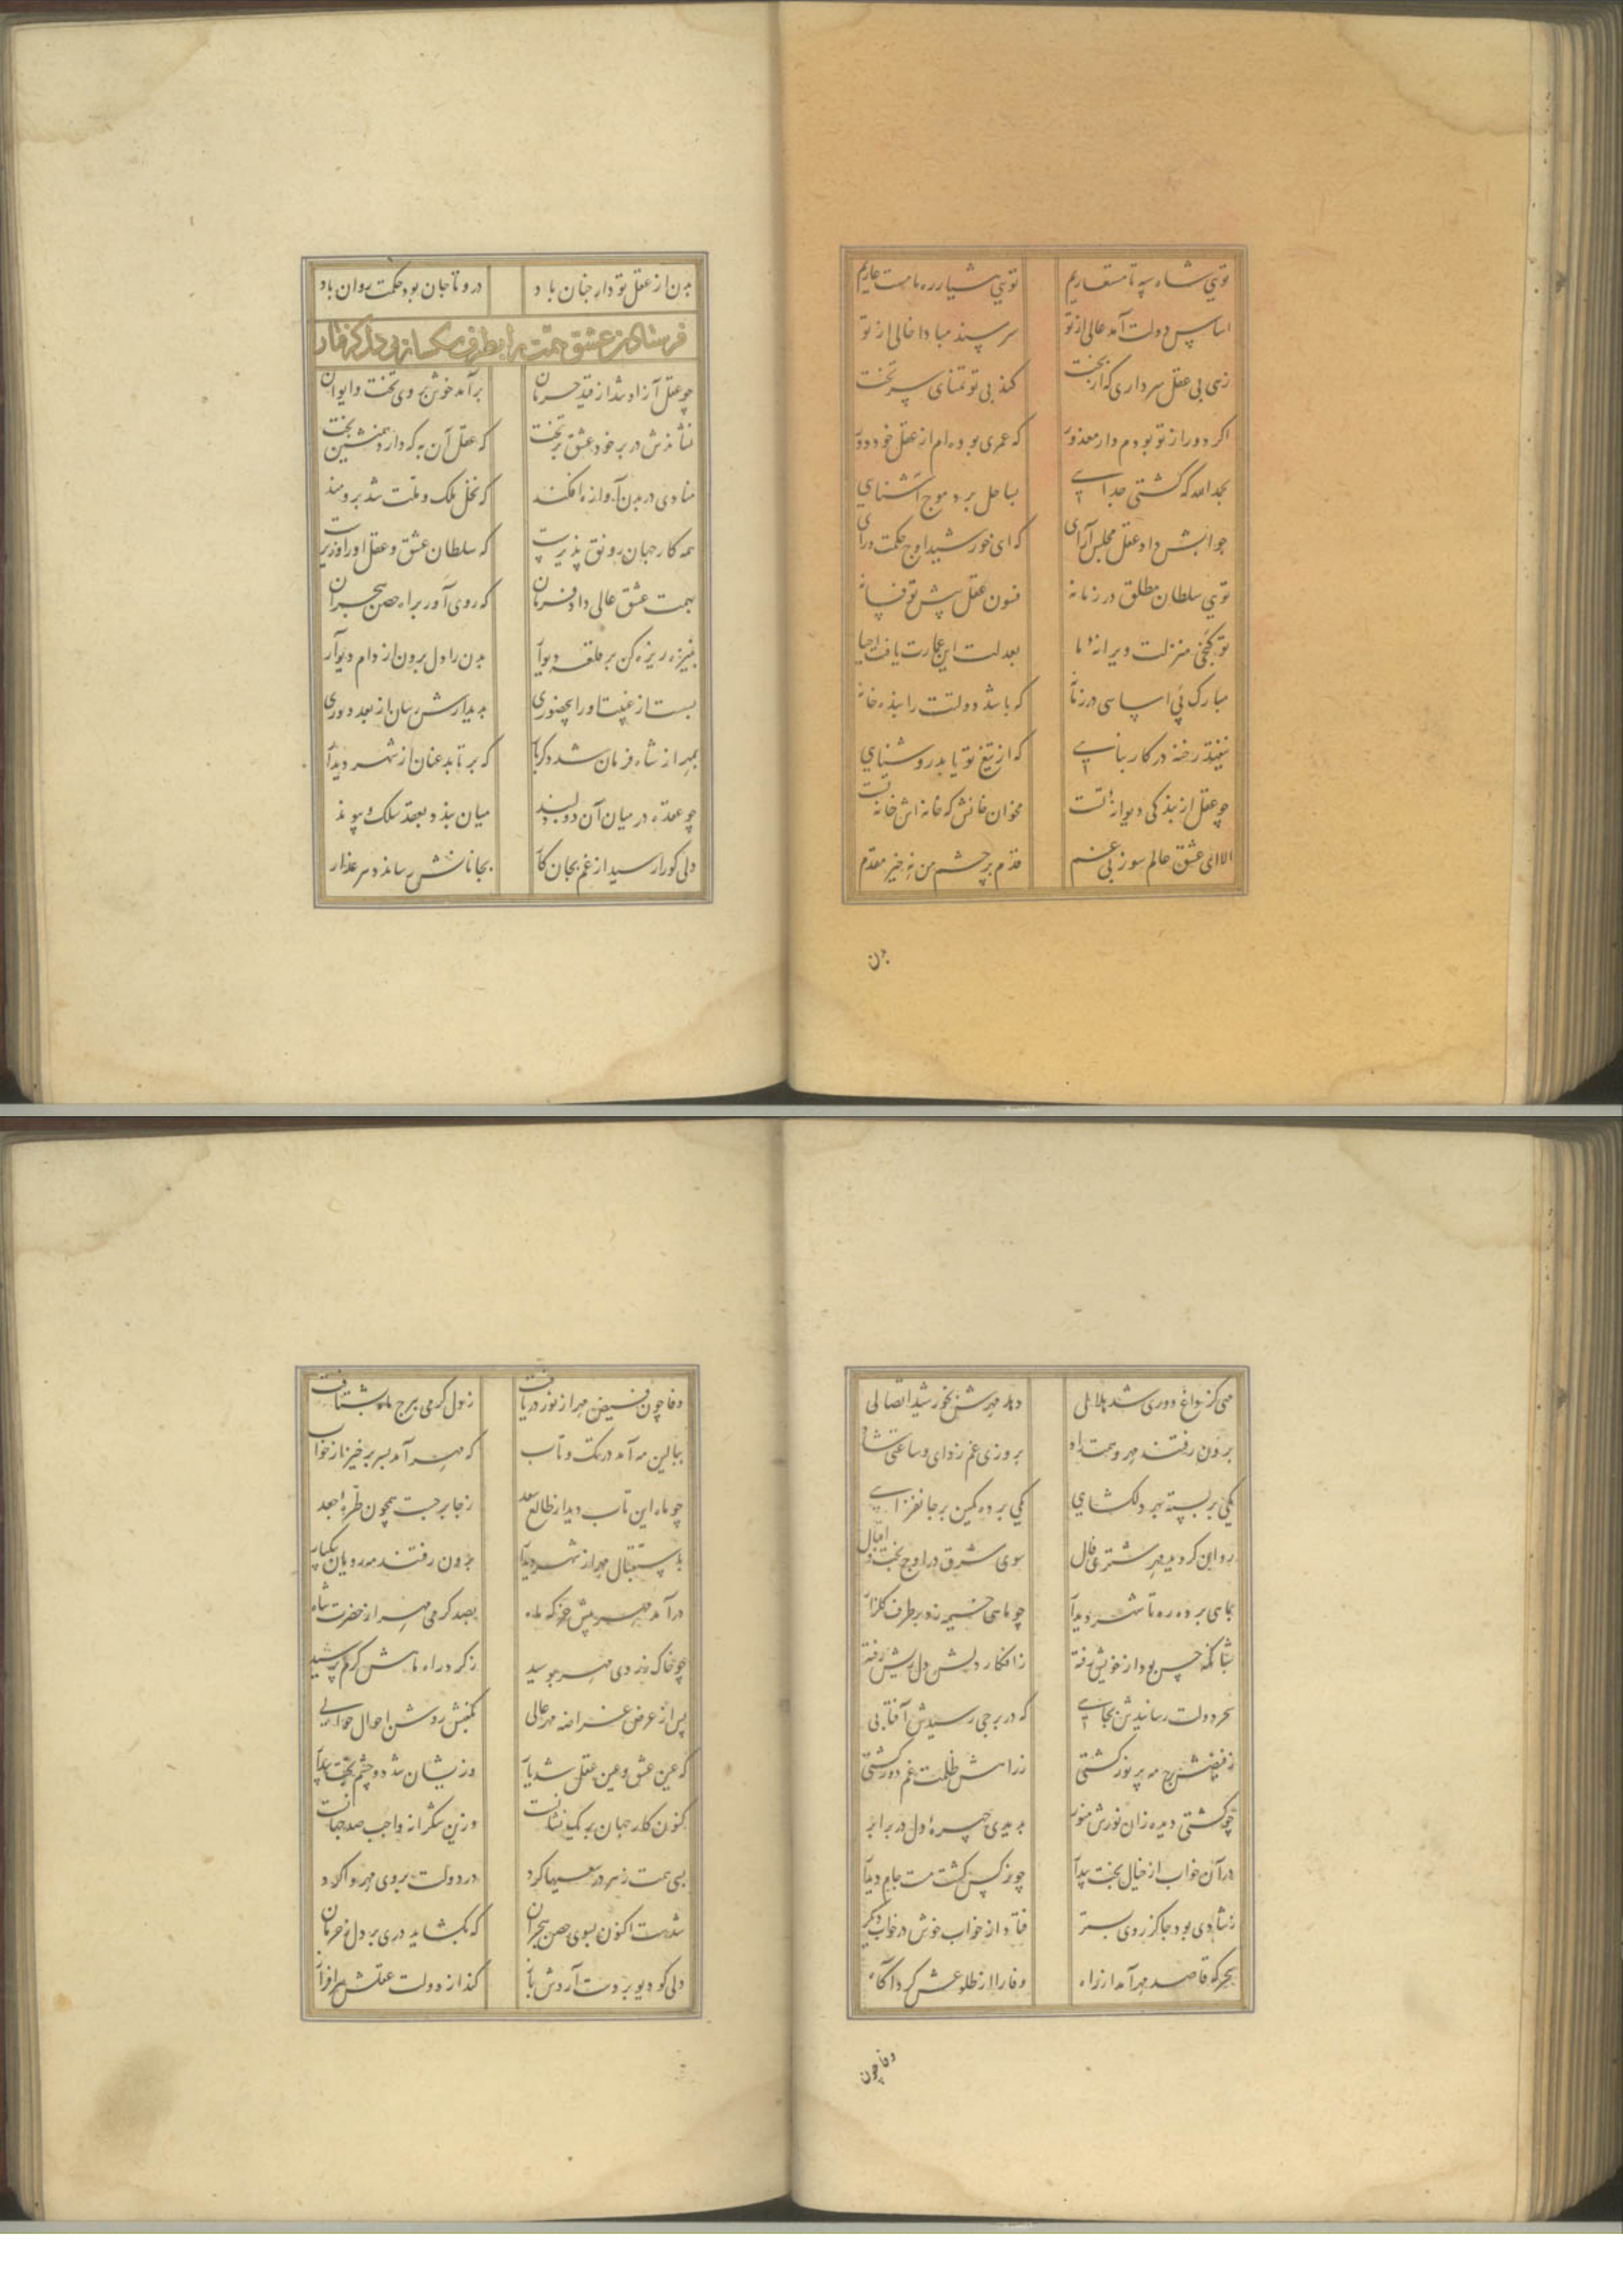 تویی شاه سپه ما مستعاریم تویی هشیار ره ما مست عاریم
اساس دولت آمد عالی از تو سر مسند مبادا خالی از تو
زهی بی عقل سرداری که از بخت کند بی تو تمنای سر تخت
اگر دور از تو بودم دار معذور که عمری بوده ام از عقل خود دور
بحمدالله که کشتی جدایی بساحل برد موج آشنایی
جوابش داد عقل مجلس آرای که ای خورشید اوج حکمت و رای
تویی سلطان مطلق در زمانه فسون عقل پیش تو فسانه
تو گنجی منزلت ویرانهٔ ما بعدلت این عمارت یافت احیا
مبارک پی اساسی در زمانه که باشد دولتت را بنده خانه
نیفتد رخنه در کار بنایی که از تیغ تو یابد روشنایی
چو عقل از بندگی دیوانهٔ تست مخوان خانش که خانه اش خانهٔ تست
الا ای عشق عالم سوز بی غم قدم بر چشم من نه خیر مقدم
بدن
بدن از عقل تو دار جنان باد درو تا جان بود حکمت روان باد
فرستادن عشق همت را بطرف
چو عقل آزاد شد از قید حرمان برآمد خوش بروی تخت و ایوان
نشاندش در بر خود عشق بر تخت که عقل آن به که دارد همنشین بخت
منادی در بدن آوازه افکند که نخل ملک و ملت شد برومند
همه کار جهان رونق پذیرست که سلطان عشق و عقل او را وزیرست
بهمت عشق عالی داد فرمان که روی آور براه حصن هجران
بنیزه ریزه کن بر حلقه دیوار بدن را دل برون از دام دیو آر
بدیدارش رسان از بعد دوری
بمهر از شاه فرمان شد دگربار که بر تابد عنان از شهر دیدار
چو عقده در میان آن دو دلبند میان بندد بعقد سلک پیوند
دلی کو را رسید از غم بجان کار بجانانش رساند
مهی کز داغ دوری شد هلالی دهد مهرش بخورشید اتصالی
برون رفتند مهر و همت از راه بروزی غم زدای و ساعتی شاه
یکی بر بسته بهر دلگشایی یکی برده کمین بر جانفزایی
روان گردید مهر مشتری فال سوی شرق در اوج بخت و اقبال
بماهی برده ره تا شهر دیدار چو ماهی خیمه زد بر طرف گلزار
شبانگه حسن بود از خویش رفته ز افکار دلش دل ریش رفته
که در برجی رسیدش آفتابی
ز فیضش برج مه پر نور گشتی ز رامش ظلمت غم دور گشتی
چو گشتی دیده زان نورش منور بدیدی چهرهٔ دل در برابر
در آن خواب از خیال بخت بیدار چو نرگس گشت مست جام دیدار
ز شادی بود جا کز روی بستر فتاد از خواب خوش در خواب دیگر
سحرگه قاصد مهر آمد از راه وفا را از طلوعش کرد آگاه
وفا چون
وفا چون فیض مهر از نور دریافت ز دل گرمی ببرج ماه بشتافت
ببالین مه آمد در تک و تاب که مهر آمد بسر برخیز از خواب
چو ماه این تاب دید از طالع سعد ز جا برجست همچون طرهٔ جعد
باستقبال مهر از شهر دیدار برون رفتند مه رویان بیکبار
درآمد مهر پیش خرگه ماه بصد گرمی مهر از حضرت شاه
چو خاک زردی مهر بوسید ز گرد راه ماهش گرم پرسید
پس از عرض غرامه مهر عالی بگفتش روشن احوال حوالی
که عین عشق و عین عقل شد یار وزیشان شد دو چشم بخت بیدار
کنون کار جهان بر یک نشانست وزین شکرانه واجب صد جهانست
بسی همت ز هر در سعیها کرد در دولت بروی مهر وا کرد
شدست اکنون بسوی حصن هجران که بگشاید دری بر دل ز حرمان
دلی کو دیو برد دست آردش باز کند از دولت عقلش سرافراز